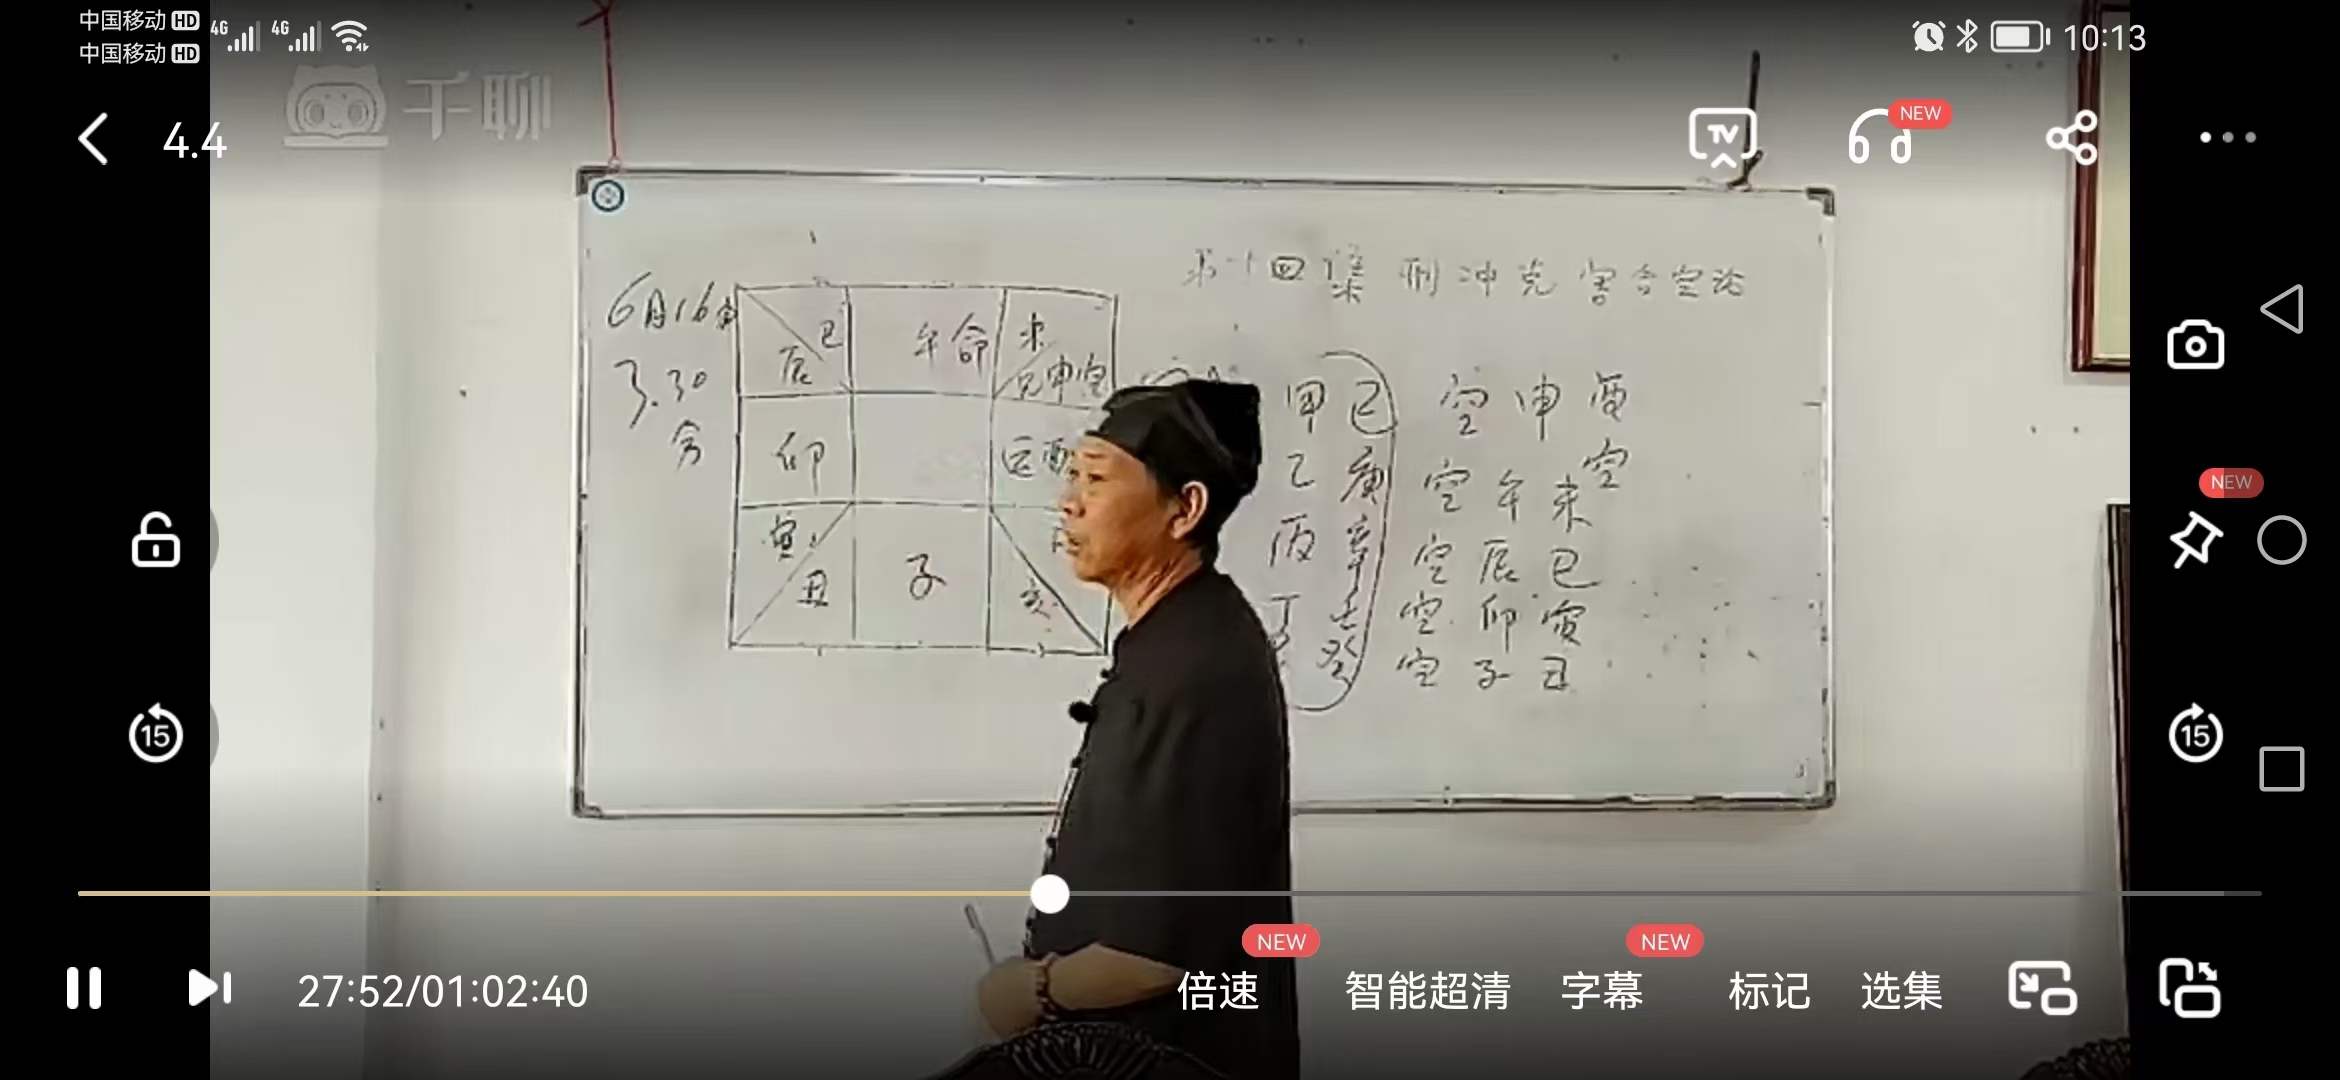 中国移动 HD 4G 4G
中国移动 HD
10:13
千聊
4.4
TV
NEW
第十四集 刑冲克害合空论
6月16
3.30
分
巳
辰
午命
未
申空
甲己 空申酉
卯
酉
乙庚 空午未空
寅
丑
子
亥
丙辛 空辰巳
丁壬 空卯寅
癸 空子丑
NEW
15
15
NEW
NEW
27:52/01:02:40
倍速
智能超清
字幕
标记
选集